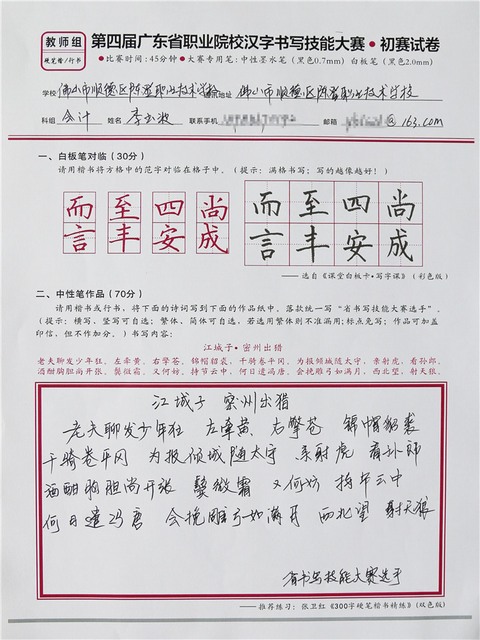 教师组
硬笔楷/行书
第四届广东省职业院校汉字书写技能大赛·初赛试卷
●比赛时间:45分钟●大赛专用笔:中性墨水笔(黑色0.7mm)白板笔(黑色2.0mm)
学校 佛山市顺德区陈登职业技术学校 通讯地址 佛山市顺德区陈登职业技术学校
科组 会计 姓名 联系手机 邮箱 @163.com
一、白板笔对临(30分)
请用楷书将方格中的范字对临在格子中。(提示:满格书写;写的越像越好!)
而至四尚 而至四尚
言丰安成 言丰安成
——选自《课堂白板卡·写字课》(彩色版)
二、中性笔作品(70分)
请用楷书或行书,将下面的诗词写到下面的作品纸中。落款统一写“省书写技能大赛选手”。
(提示:横写、竖写可自选;繁体、简体可自选,若选用繁体则不准漏用;标点免写;作品可加盖
印信,但不作加分。)书写内容:
江城子·密州出猎
老夫聊发少年狂,左牵黄,右擎苍,锦帽貂裘,千骑卷平冈。为报倾城随太守,亲射虎,看孙郎。
酒酣胸胆尚开张,鬓微霜,又何妨。持节云中,何日遣冯唐。会挽雕弓如满月,西北望,射天狼。
江城子 密州出猎
老夫聊发少年狂 左牵黄 右擎苍 锦帽貂裘
千骑卷平冈 为报倾城随太守 亲射虎 看孙郎
酒酣胸胆尚开张 鬓微霜 又何妨 持节云中
何日遣冯唐 会挽雕弓如满月 西北望 射天狼
省书写技能大赛选手
——推荐练习:张卫红《300字硬笔楷书精练》(双色版)